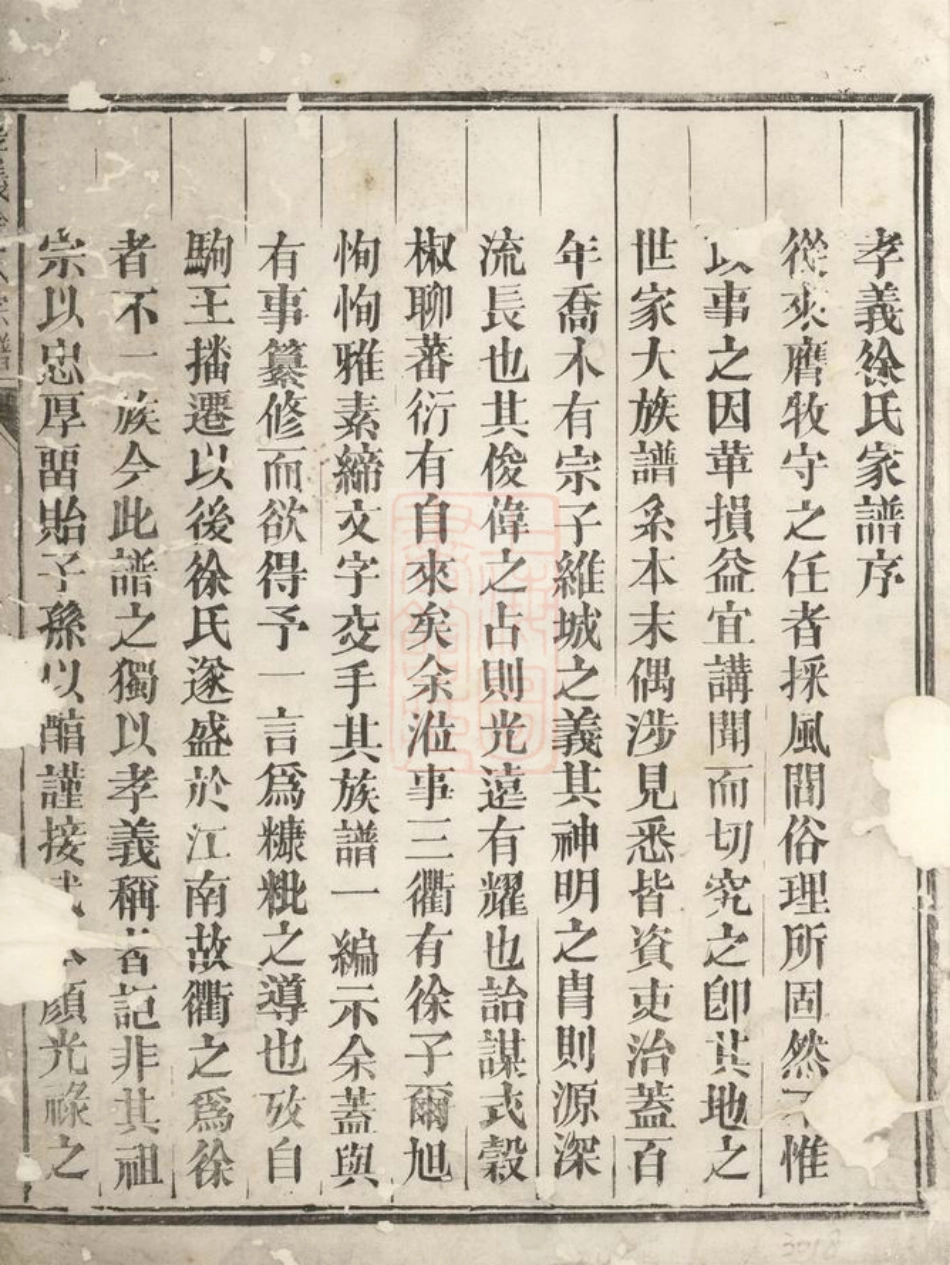 孝義徐氏家譜序
從來膺牧守之任者採風問俗理所固然不惟
以事之因革損益宜講聞而切究之卽其地之
世家大族譜系本末偶涉見悉皆資吏治蓋百
年喬木有宗子維城之義其神明之胄則源深
流長也其俊偉之占則光遠有耀也詒謀式穀
椒聊蕃衍有自來矣余涖事三衢有徐子爾旭
恂恂雅素締文字交手其族譜一編示余蓋與
有事纂修而欲得予一言爲糠粃之導也攷自
駒王播遷以後徐氏遂盛於江南故衢之爲徐
者不一族今此譜之獨以孝義稱者記非其祖
宗以忠厚留貽子孫以醇謹接武 顏光祿之
孝義徐氏宗譜